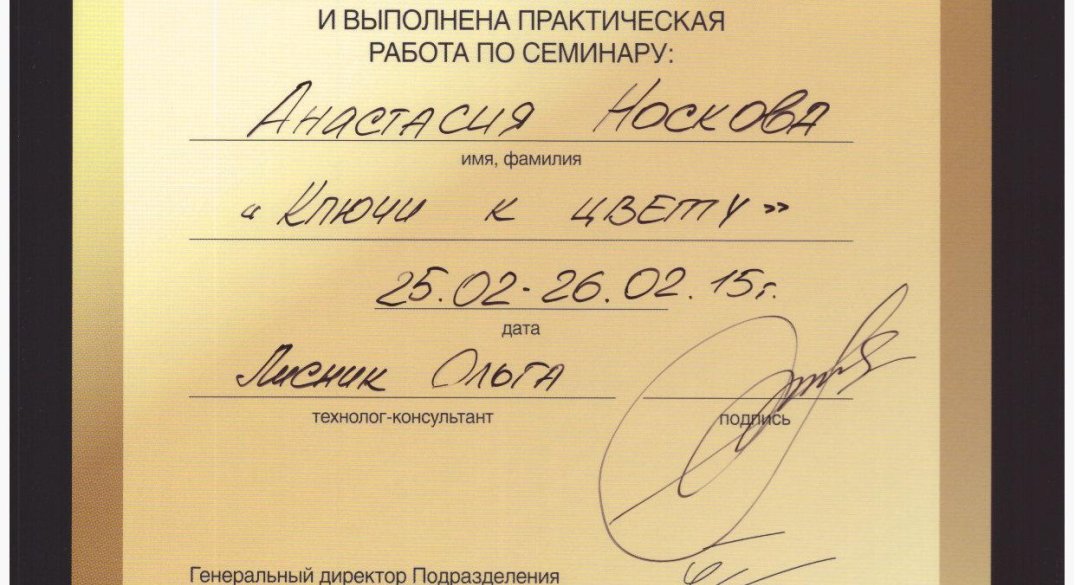 И ВЫПОЛНЕНА ПРАКТИЧЕСКАЯ
РАБОТА ПО СЕМИНАРУ:
Анастасия Носкова
имя, фамилия
"Ключи к цвету"
25.02-26.02.15г.
дата
Лисник Ольга
технолог-консультант
подпись
Генеральный директор Подразделения